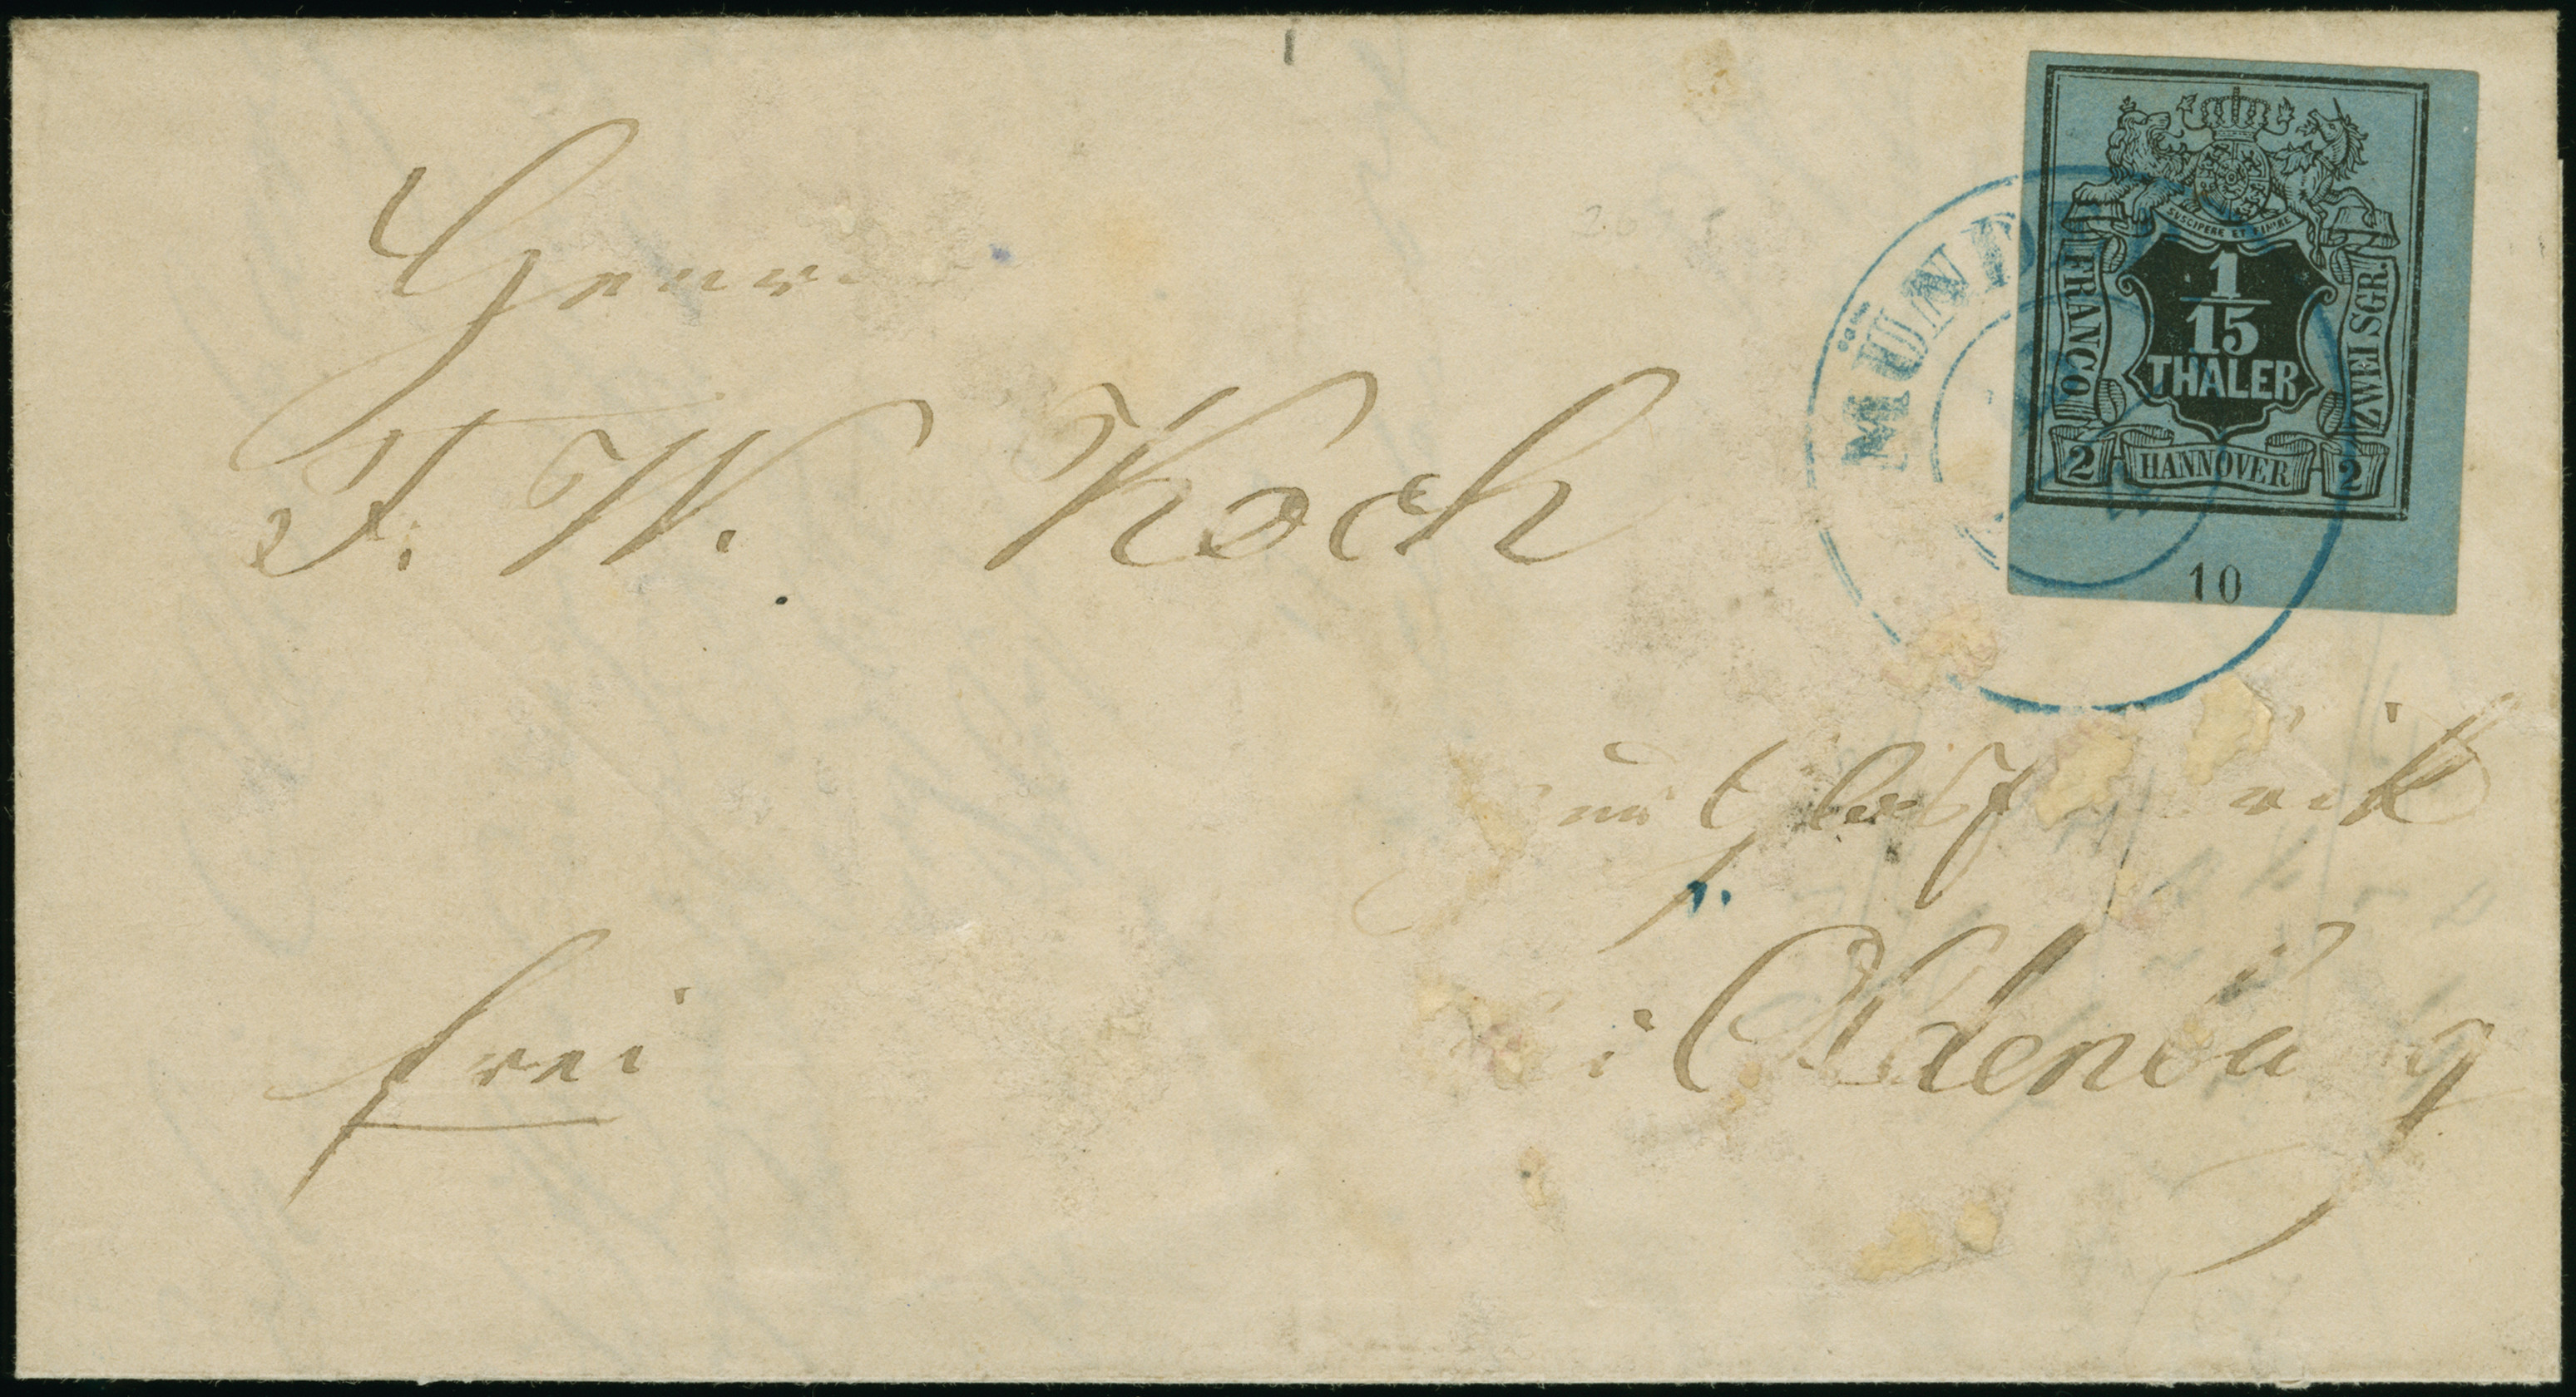 Herrn
F. W. Koch
frei
i Oldenbu g
MÜNDEN
SUSCIPERE ET FINIRE
FRANCO
1/15
THALER
ZWEI SGR.
2 HANNOVER 2
10